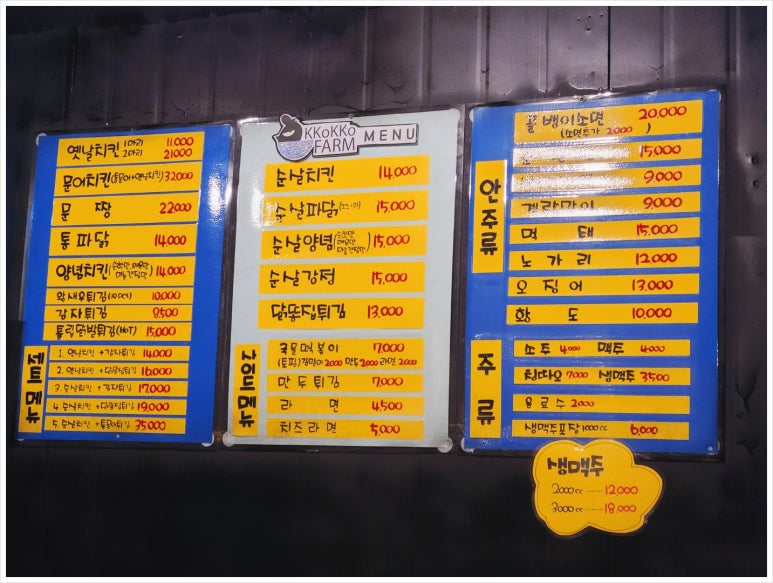 옛날치킨 1마리 11,000
2마리 21,000
문어치킨(통문어+옛날치킨) 32,000
문 짱 22,000
통파닭 14,000
양념치킨 14,000
왕새우튀김(10pcs) 10,000
감자튀김 8,500
통릭닭발튀김(HOT) 15,000
세트메뉴
1. 옛날치킨 + 감자튀김 14,000
2. 옛날치킨 + 닭똥집튀김 16,000
3. 순살치킨 + 감자튀김 17,000
4. 순살치킨 + 닭똥집튀김 19,000
5. 순살치킨 + 통문어튀김 35,000
KKoKKo
FARM MENU
순살치킨 14,000
순살파닭 15,000
순살양념 15,000
순살강정 15,000
닭똥집튀김 13,000
사이드메뉴
국물떡볶이 7,000
(토핑) 김말이 2,000 만두 2,000 라면 2,000
만두튀김 7,000
라 면 4,500
치즈라면 5,000
골뱅이소면 20,000
(소면추가 2,000 )
안주류
15,000
9,000
계란말이 9,000
먹 태 15,000
노가리 12,000
오징어 13,000
황 도 10,000
주류
소주 4,000 맥주 4,000
칭따오 7,000 생맥주 3,500
음료수 2,000
생맥주포장 1000cc 6,000
생맥주
2000cc ······ 12,000
3000cc ······ 18,000